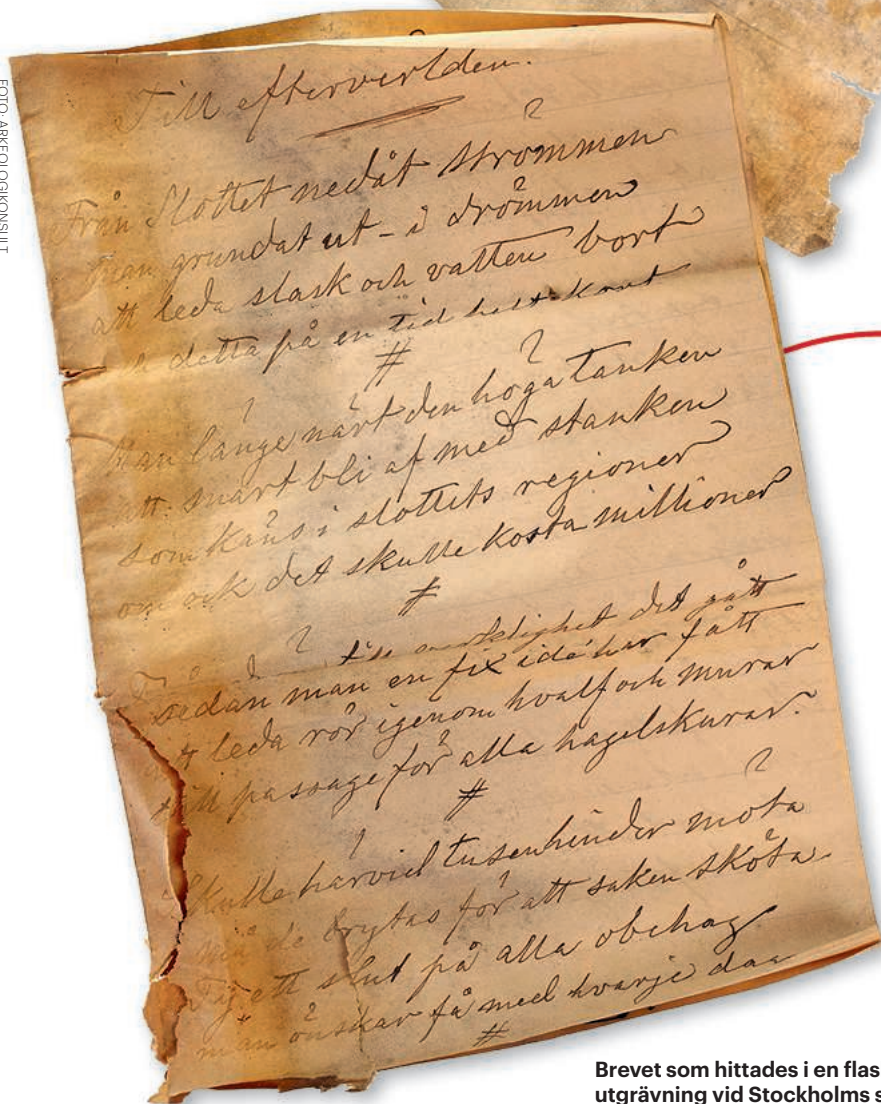 FOTO: ARKEOLOGIKONSULT
Till efterverlden.
Från Slottet nedåt strömmen
man grundat ut - i drömmen
att leda slask och vatten bort
detta på en tid helt kort
#
Man länge närt den höga tanken
att snart bli af med stanken
som käns i slottets regioner
om ock det skulle kosta millioner
#
det gått
sedan man en fix idé har fått
att leda rör igenom hvalf och murar
till passage för alla hagelskurar.
#
Skulle härvid tusen hinder möta
må de brytas för att saken sköta
Ty ett slut på alla obehag
man önskar få med hvarje dag
#
Brevet som hittades i en flas
utgrävning vid Stockholms s